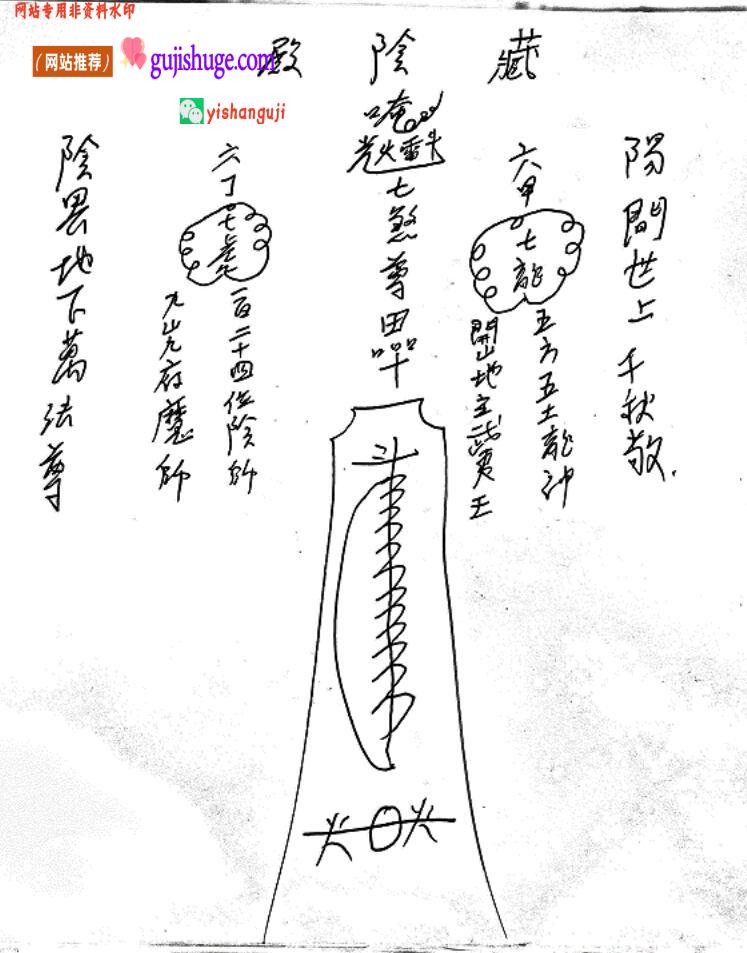 网站专用非资料水印
(网站推荐) gujishuge.com
yishanguji
藏陰殿
陽間世上千秋敬
六甲
七龍
五方五土龍神
開山地主武夷王
唵
七煞尊
六丁
一百二十四位陰師
九山九府魔師
陰畏地下萬法尊
斗
火 火